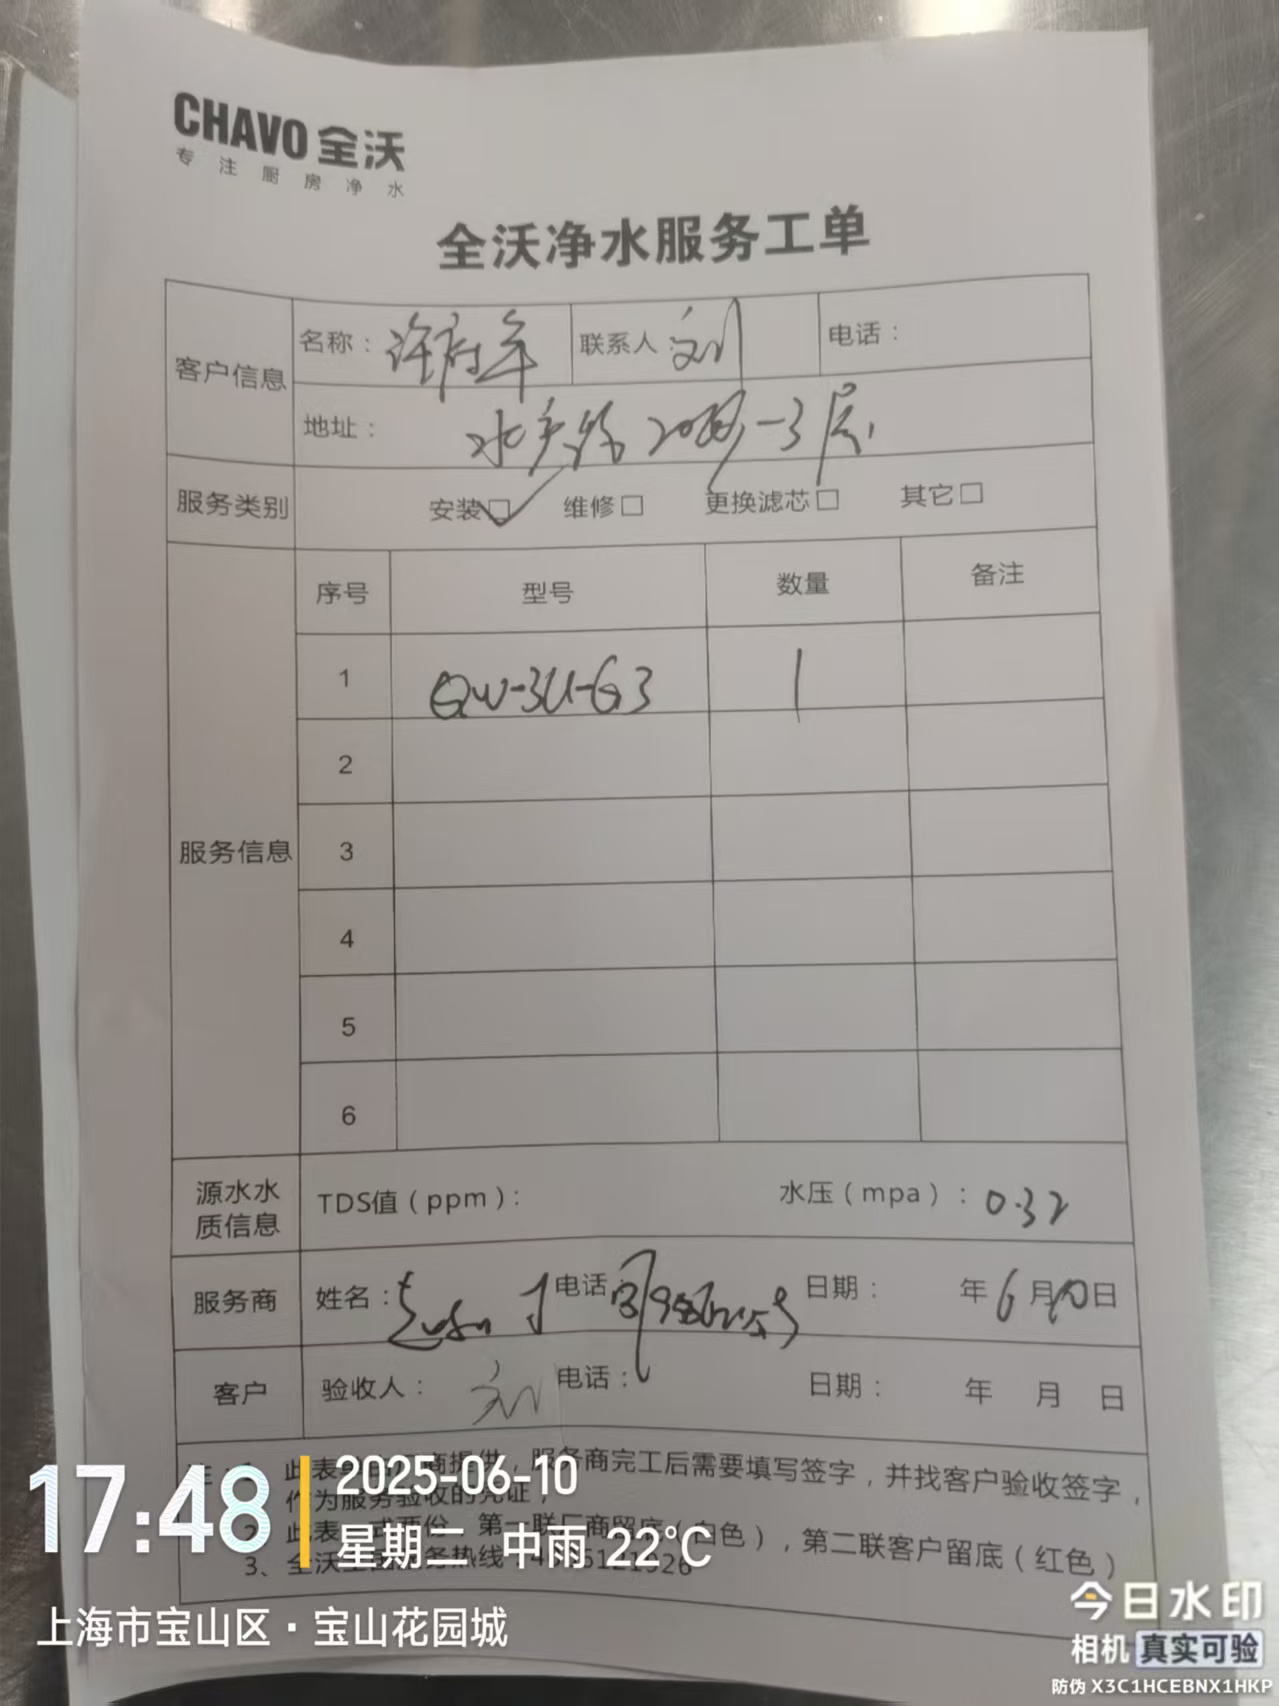 CHAVO 全沃
专注厨房净水
全沃净水服务工单
客户信息 名称：许府牛 联系人：刘 电话：
地址：水产路 -3层
服务类别 安装☑ 维修□ 更换滤芯□ 其它□
服务信息 序号 型号 数量 备注
1 QW-3U-G3 1
2
3
4
5
6
源水水质信息 TDS值（ppm）： 水压（mpa）：0.32
服务商 姓名： 电话： 日期： 年6月10日
客户 验收人：刘 电话： 日期： 年 月 日
此表 商提供，服务商完工后需要填写签字，并找客户验收签字，
作为服务验收的凭证；
2、此表一式两份，第一联厂商留底（白色），第二联客户留底（红色）
3、全沃全国服务热线
17:48
2025-06-10
星期二 中雨 22℃
上海市宝山区·宝山花园城
今日水印
相机 真实可验
防伪 X3C1HCEBNX1HKP